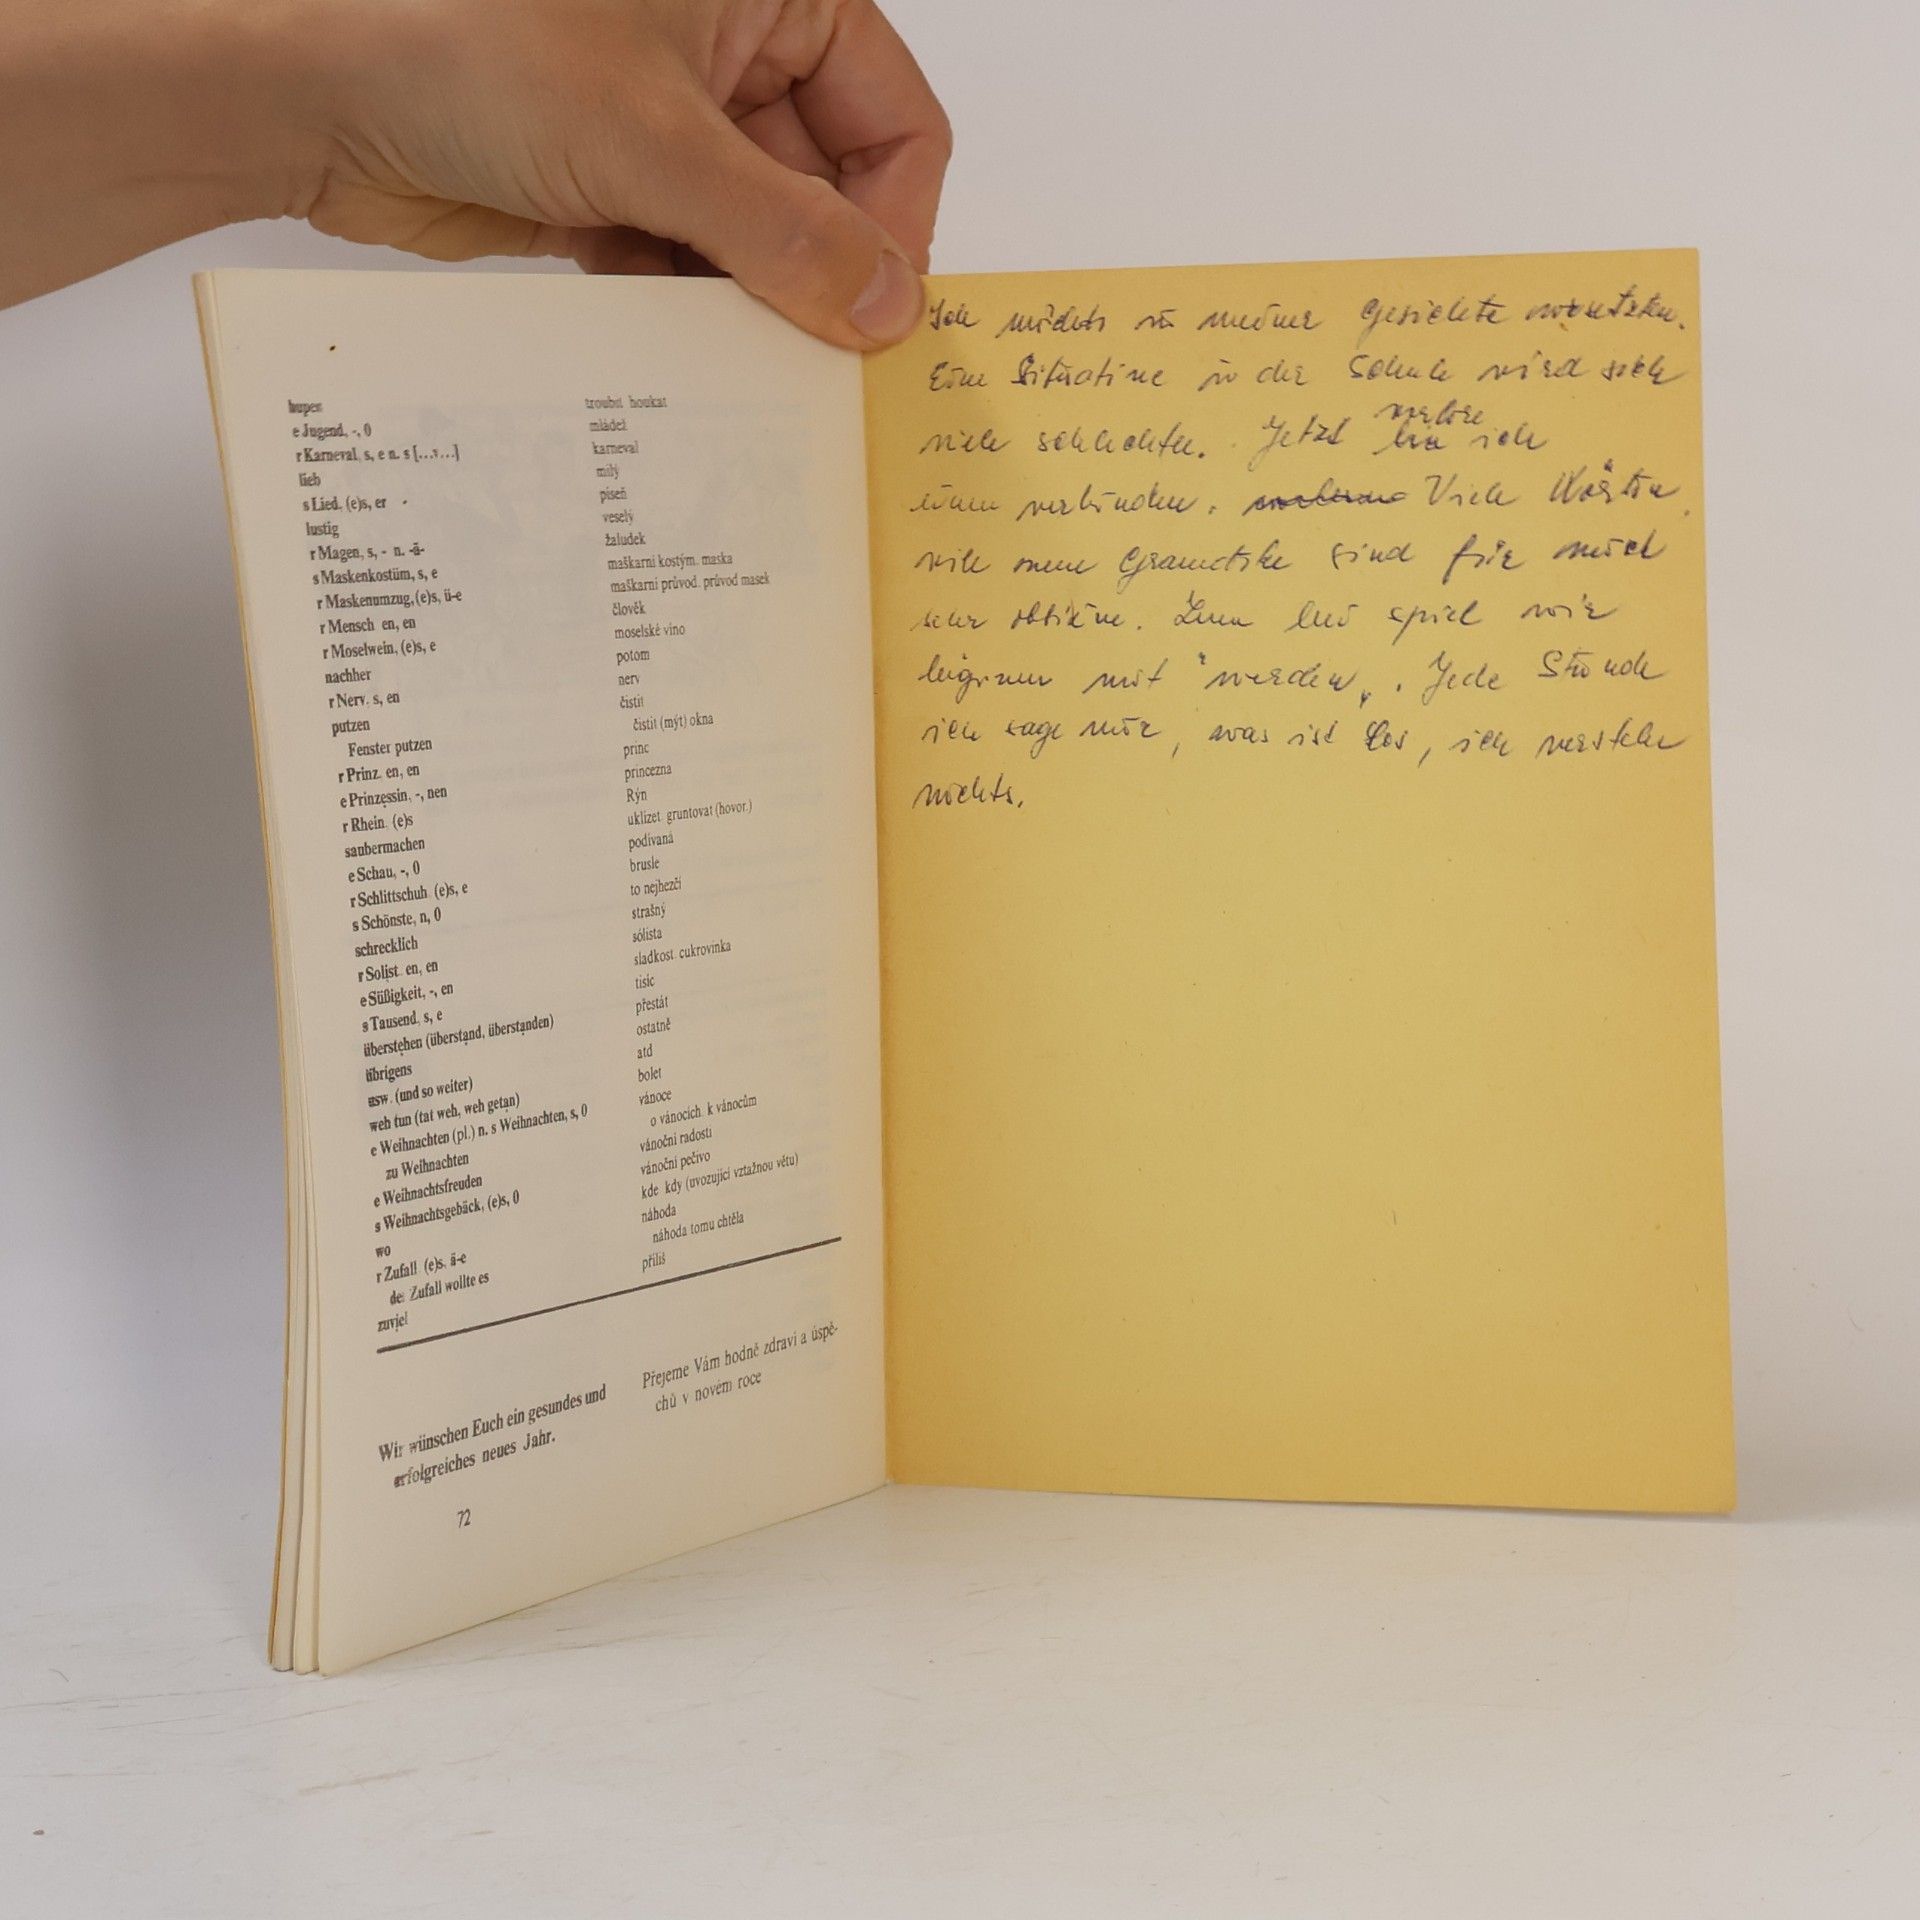 hupen troubit houkat
e Jugend, -, 0 mládež
r Karneval, s, e n. s [...v...] karneval
lieb milý
s Lied, (e)s, er píseň
lustig veselý
r Magen, s, - n. -ä- žaludek
s Maskenkostüm, s, e maškarní kostým, maska
r Maskenumzug, (e)s, ü-e maškarní průvod, průvod masek
r Mensch en, en člověk
r Moselwein, (e)s, e moselské víno
nachher potom
r Nerv, s, en nerv
putzen čistit
Fenster putzen čistit (mýt) okna
r Prinz, en, en princ
e Prinzessin, -, nen princezna
r Rhein, (e)s Rýn
saubermachen uklízet, gruntovat (hovor.)
e Schau, -, 0 podívaná
r Schlittschuh, (e)s, e brusle
s Schönste, n, 0 to nejhezčí
schrecklich strašný
r Solist, en, en sólista
e Süßigkeit, -, en sladkost, cukrovinka
s Tausend, s, e tisíc
überstehen (überstand, überstanden) přestát
übrigens ostatně
usw. (und so weiter) atd
weh tun (tat weh, weh getan) bolet
e Weihnachten (pl.) n. s Weihnachten, s, 0 vánoce
zu Weihnachten o vánocích, k vánocům
e Weihnachtsfreuden vánoční radosti
s Weihnachtsgebäck, (e)s, 0 vánoční pečivo
wo kde kdy (uvozující vztažnou větu)
r Zufall (e)s, ä-e náhoda
der Zufall wollte es náhoda tomu chtěla
zuviel příliš
Wir wünschen Euch ein gesundes und
erfolgreiches neues Jahr.
Přejeme Vám hodně zdraví a úspě-
chů v novém roce
72
Ich möchte in meiner Gesichte
Eine Situatine in der Schule wird sich
viele schlechter. Jetzt bin ich
verbinden. Viele Wörter,
viele neue Gramatike sind für mich
sehr Zum spiel wir
mit "werden". Jede Stunde
ich sage mir, was ist los, ich verstehe
nichts.